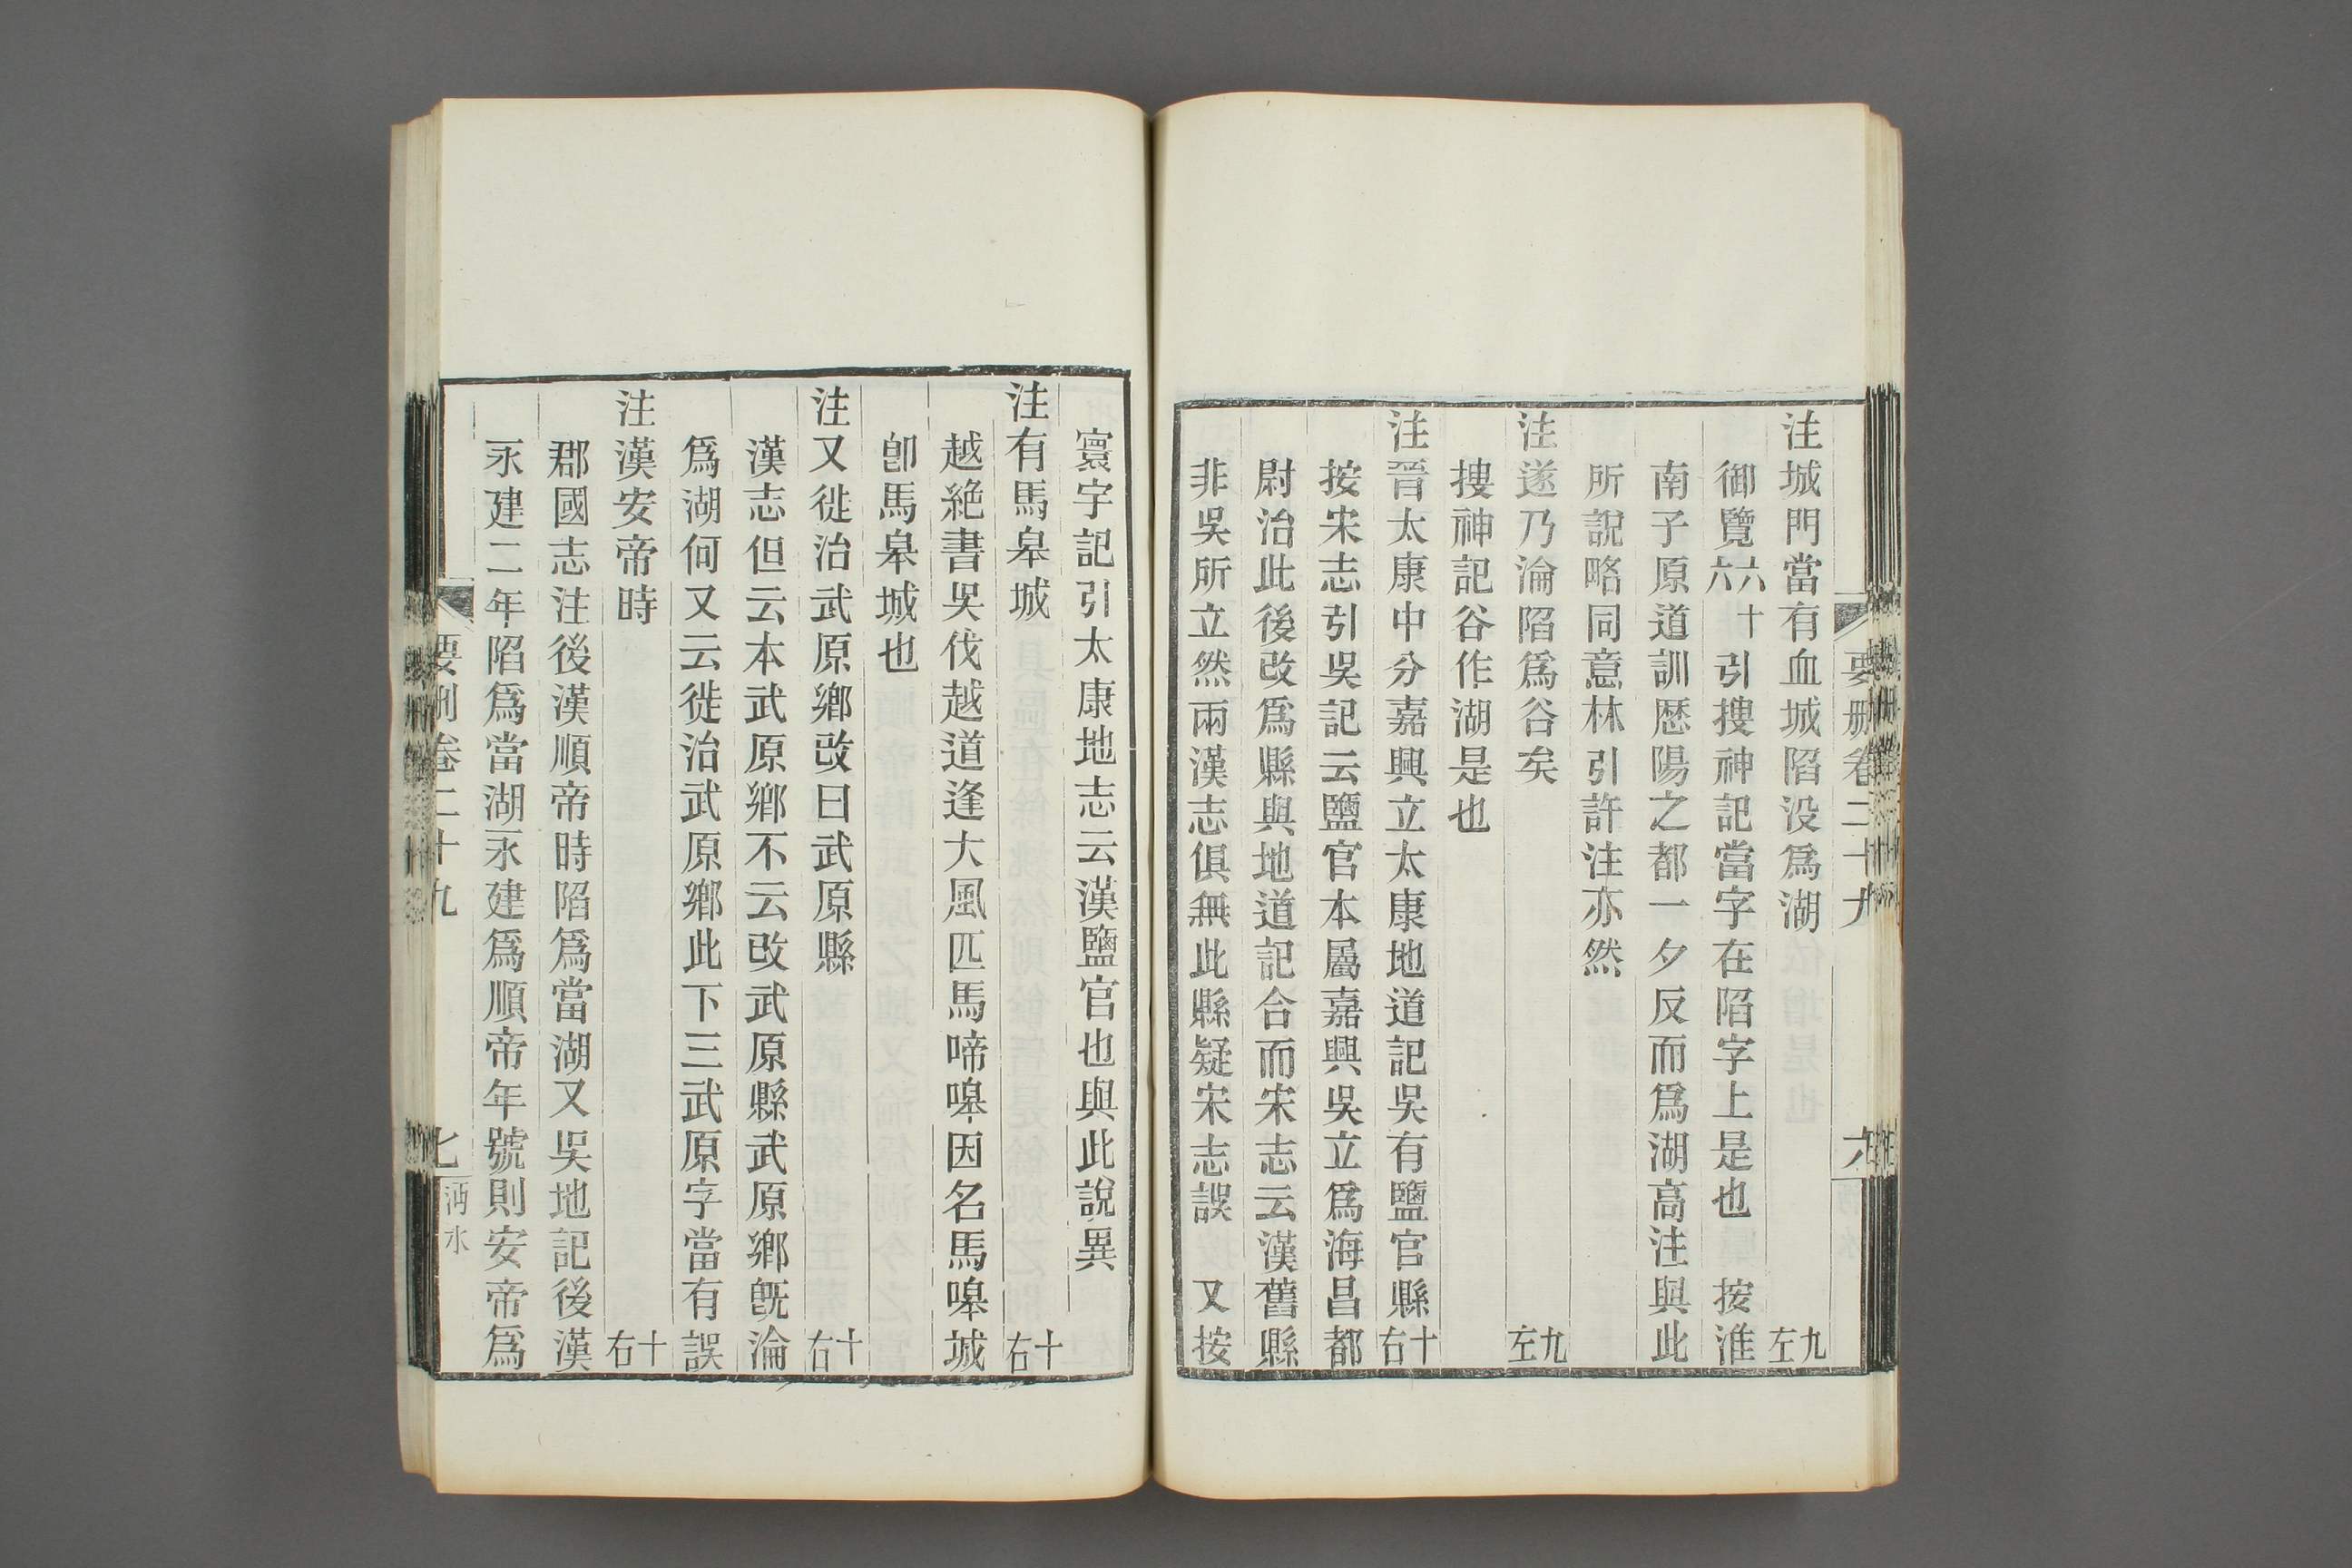 要刪卷二十九
六
注城門當有血城陷没爲湖 九左
御覽六十六引搜神記當字在陷字上是也 按淮
南子原道訓歷陽之都一夕反而爲湖高注與此
所說略同意林引許注亦然
注遂乃淪陷爲谷矣 九左
搜神記谷作湖是也
注晉太康中分嘉興立太康地道記吳有鹽官縣 十右
按宋志引吳記云鹽官本屬嘉興吳立爲海昌都
尉治此後改爲縣與地道記合而宋志云漢舊縣
非吳所立然兩漢志俱無此縣疑宋志誤 又按
寰宇記引太康地志云漢鹽官也與此說異
注有馬皋城 十右
越絶書吳伐越道逢大風匹馬啼嘷因名馬嘷城
卽馬皋城也
注又徙治武原鄉改曰武原縣 十右
漢志但云本武原鄉不云改武原縣武原鄉旣淪
爲湖何又云徙治武原鄉此下三武原字當有誤
注漢安帝時 十右
郡國志注後漢順帝時陷爲當湖又吳地記後漢
永建二年陷爲當湖永建爲順帝年號則安帝爲
要刪卷二十九
七
沔水